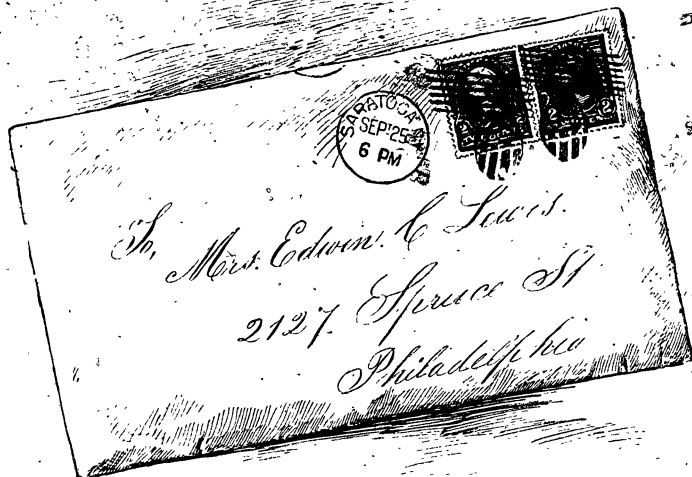 SARATOGA
SEP 25
6 PM
2 2
To,
Mrs. Edwin. C Lewis.
2127. Spruce St
Philadelphia